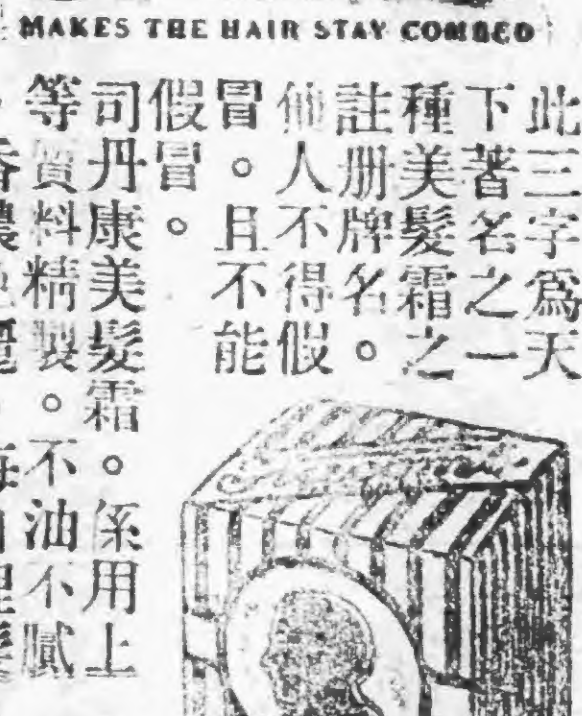 MAKES THE HAIR STAY COMBED
此三字爲天
下著名之一
種美髮霜之
註册牌名。
他人不得假
冒。且不能
假冒。
司丹康美髮霜。係用上
等質料精製。不油不膩